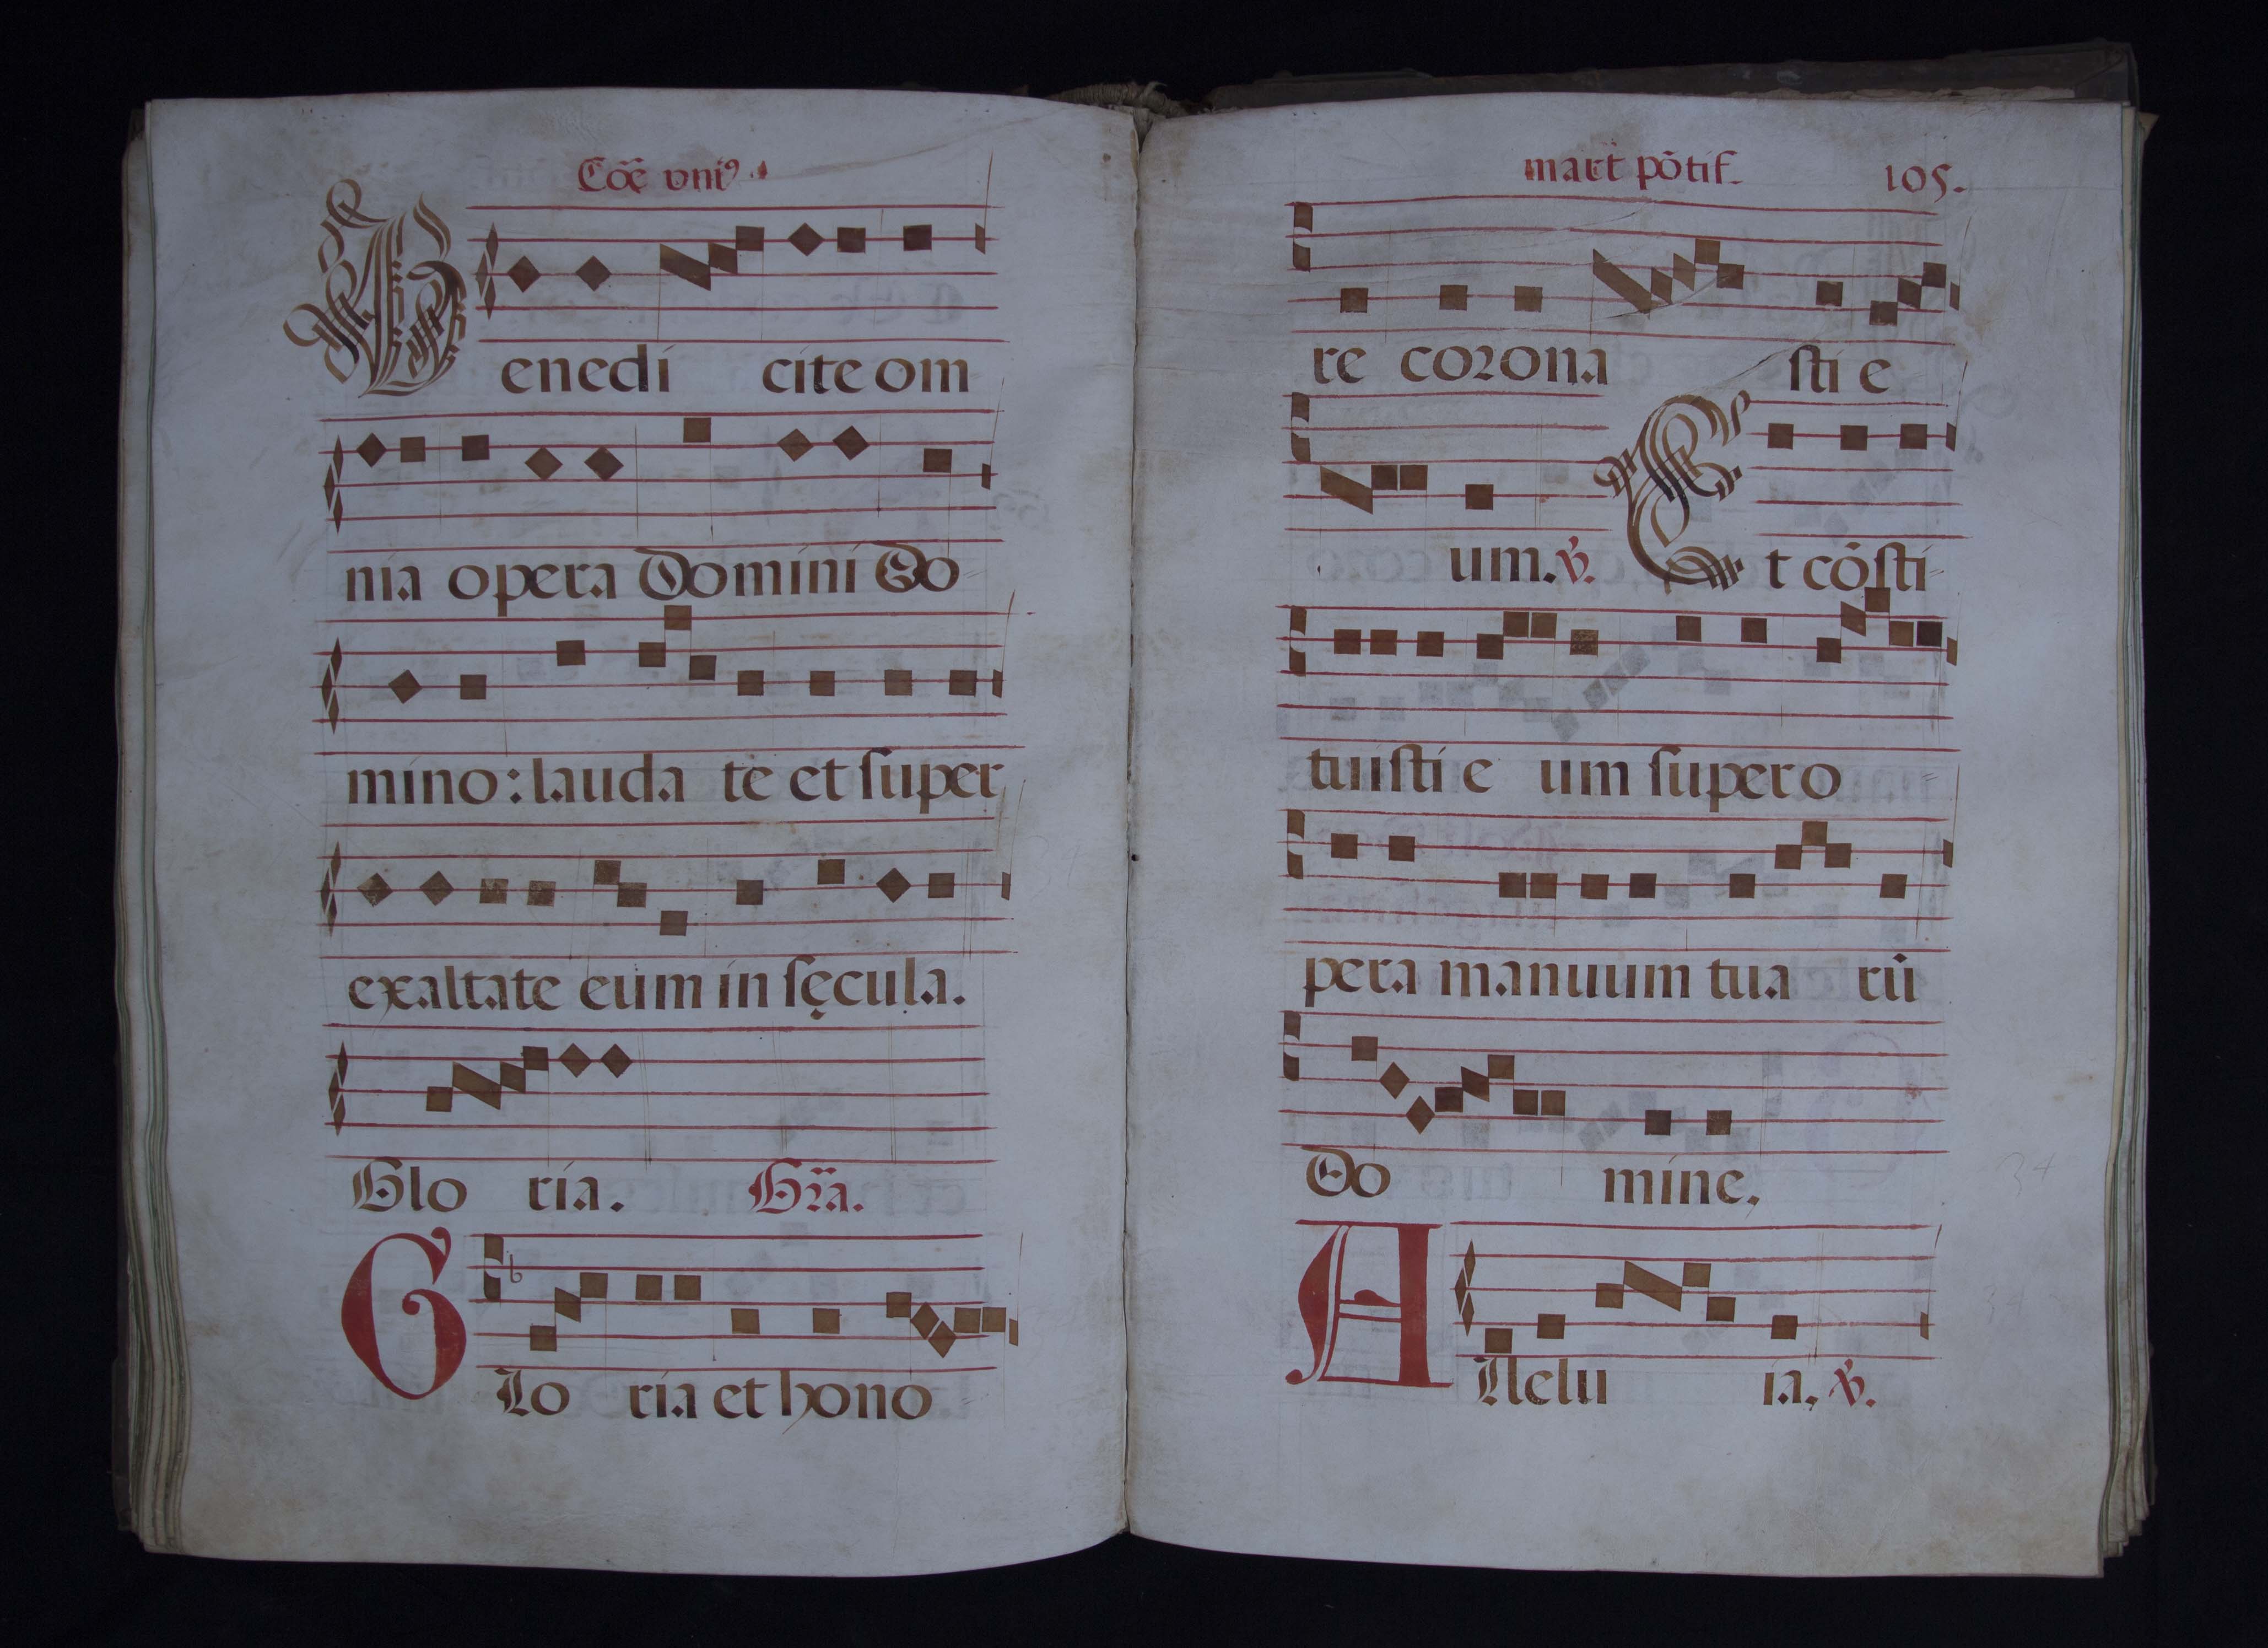 Cōe vniꝰ
Benedi cite om
nia opera Domini Do
mino: lauda te et ſuper
exaltate eum in ſęcula.
Glo ria. Gr̄a.
Glo ria et hono
mart̄ pōtif. 105.
re corona ſti e
um. ℣. Et cōſti-
tuiſti e um ſuper o
pera manuum tua rū
Do mine.
Allelu ia. ℣.